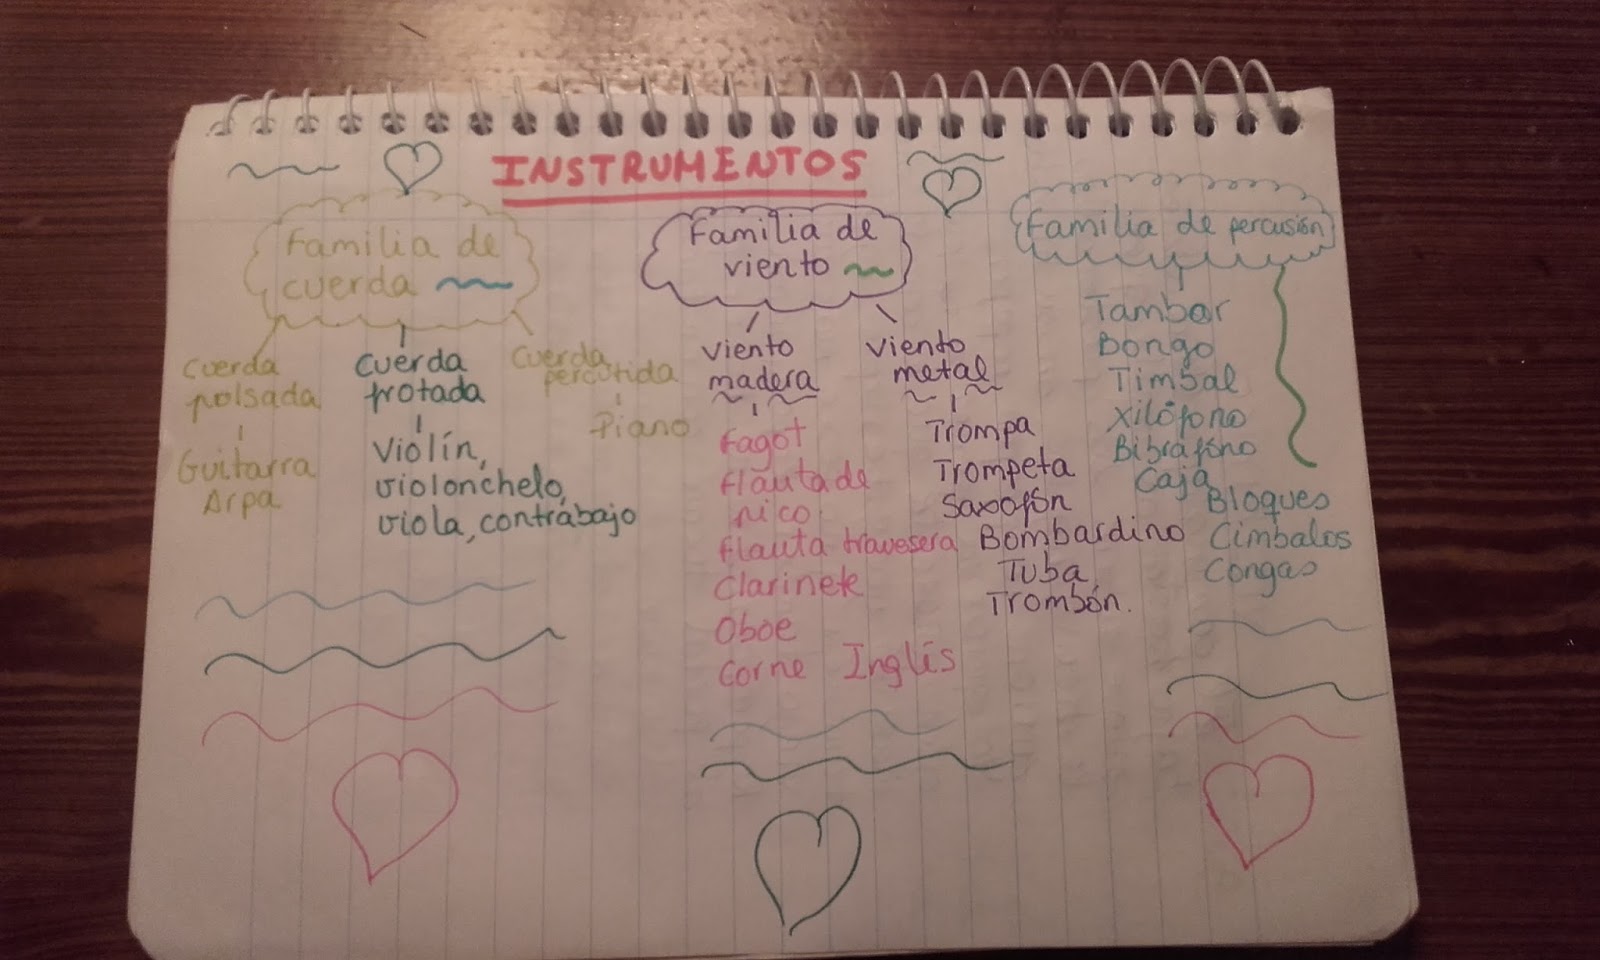 INSTRUMENTOS
Familia de
cuerda
Cuerda
pulsada
Guitarra
Arpa
Cuerda
frotada
Violín,
violonchelo,
viola, contrabajo
Cuerda
percutida
Piano
Familia de
viento
Viento
madera
Fagot
Flauta de
pico
Flauta travesera
Clarinete
Oboe
Corne Inglés
Viento
metal
Trompa
Trompeta
Saxofón
Bombardino
Tuba,
Trombón.
Familia de percusión
Tambor
Bongo
Timbal
Xilófono
Bibráfono
Caja
Bloques
Cimbalos
Congas